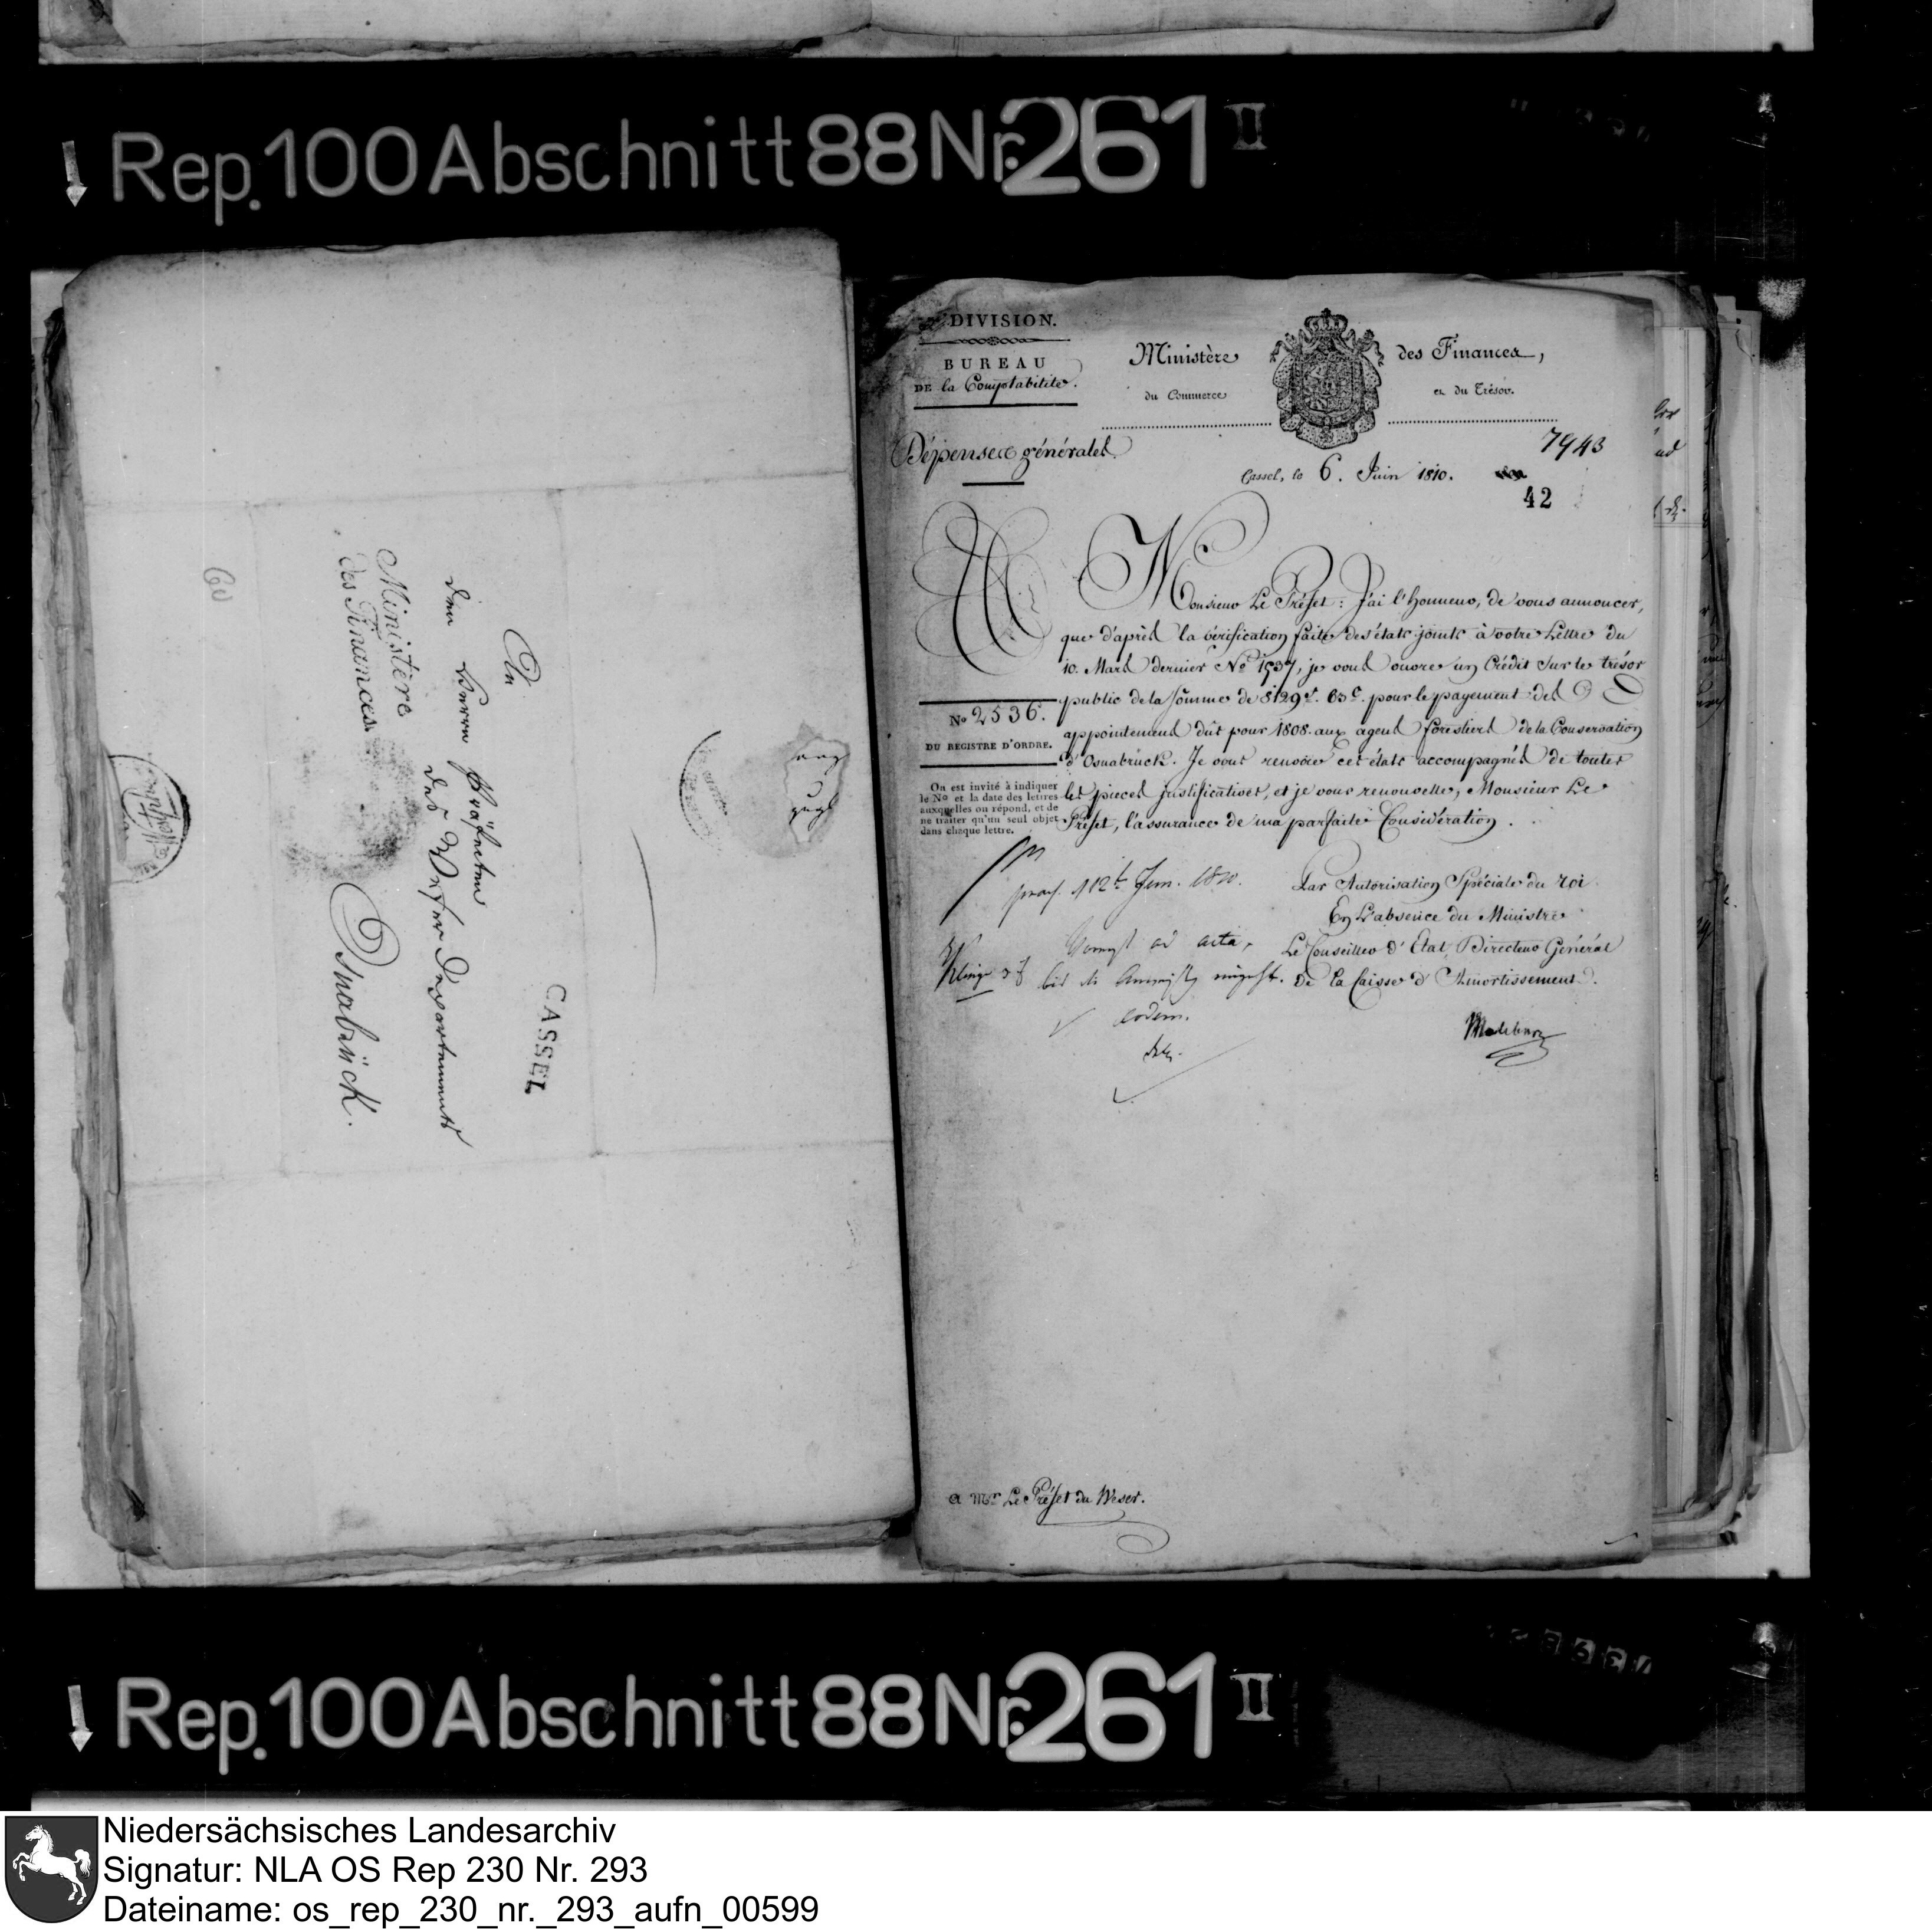 Rep. 100 Abschnitt 88 Nr. 261 II
An
den Herrn Präfecten
des Weser Departements
Ministère
des Finances
Osnabrück.
CASSEL
DIVISION.
BUREAU
DE la Comptabilité.
Ministère des Finances,
du Commerce et du Trésor.
Dépenses générales
7943
Cassel, le 6. Juin 1810.
42
Monsieur Le Préfet: J'ai l'honneur, de vous annoncer,
que d'après la vérification faite des états joints à votre Lettre du
10. Mars dernier No 1537, je vous ouvre un Crédit sur le trésor
public de la Somme de 8129 f. 63 c. pour le payement des
appointemens dûs pour 1808. aux agens forestiers de la Conservation
d'Osnabrück. Je vous renvoie ces états accompagnés de toutes
les pieces justificatives, et je vous renouvelle, Monsieur Le
Préfet, l'assurance de ma parfaite Considération.
No 2536.
DU REGISTRE D'ORDRE.
On est invité à indiquer
le No et la date des lettres
auxquelles on répond, et de
ne traiter qu'un seul objet
dans chaque lettre.
Par Autorisation Spéciale du roi
En L'absence du Ministre
Le Conseiller d'Etat, Directeur Général
de la Caisse d'Amortissement.
Malchus
ad acta
eodem.
a Mr Le Préfet du Weser.
Rep. 100 Abschnitt 88 Nr. 261 II
Niedersächsisches Landesarchiv
Signatur: NLA OS Rep 230 Nr. 293
Dateiname: os_rep_230_nr._293_aufn_00599